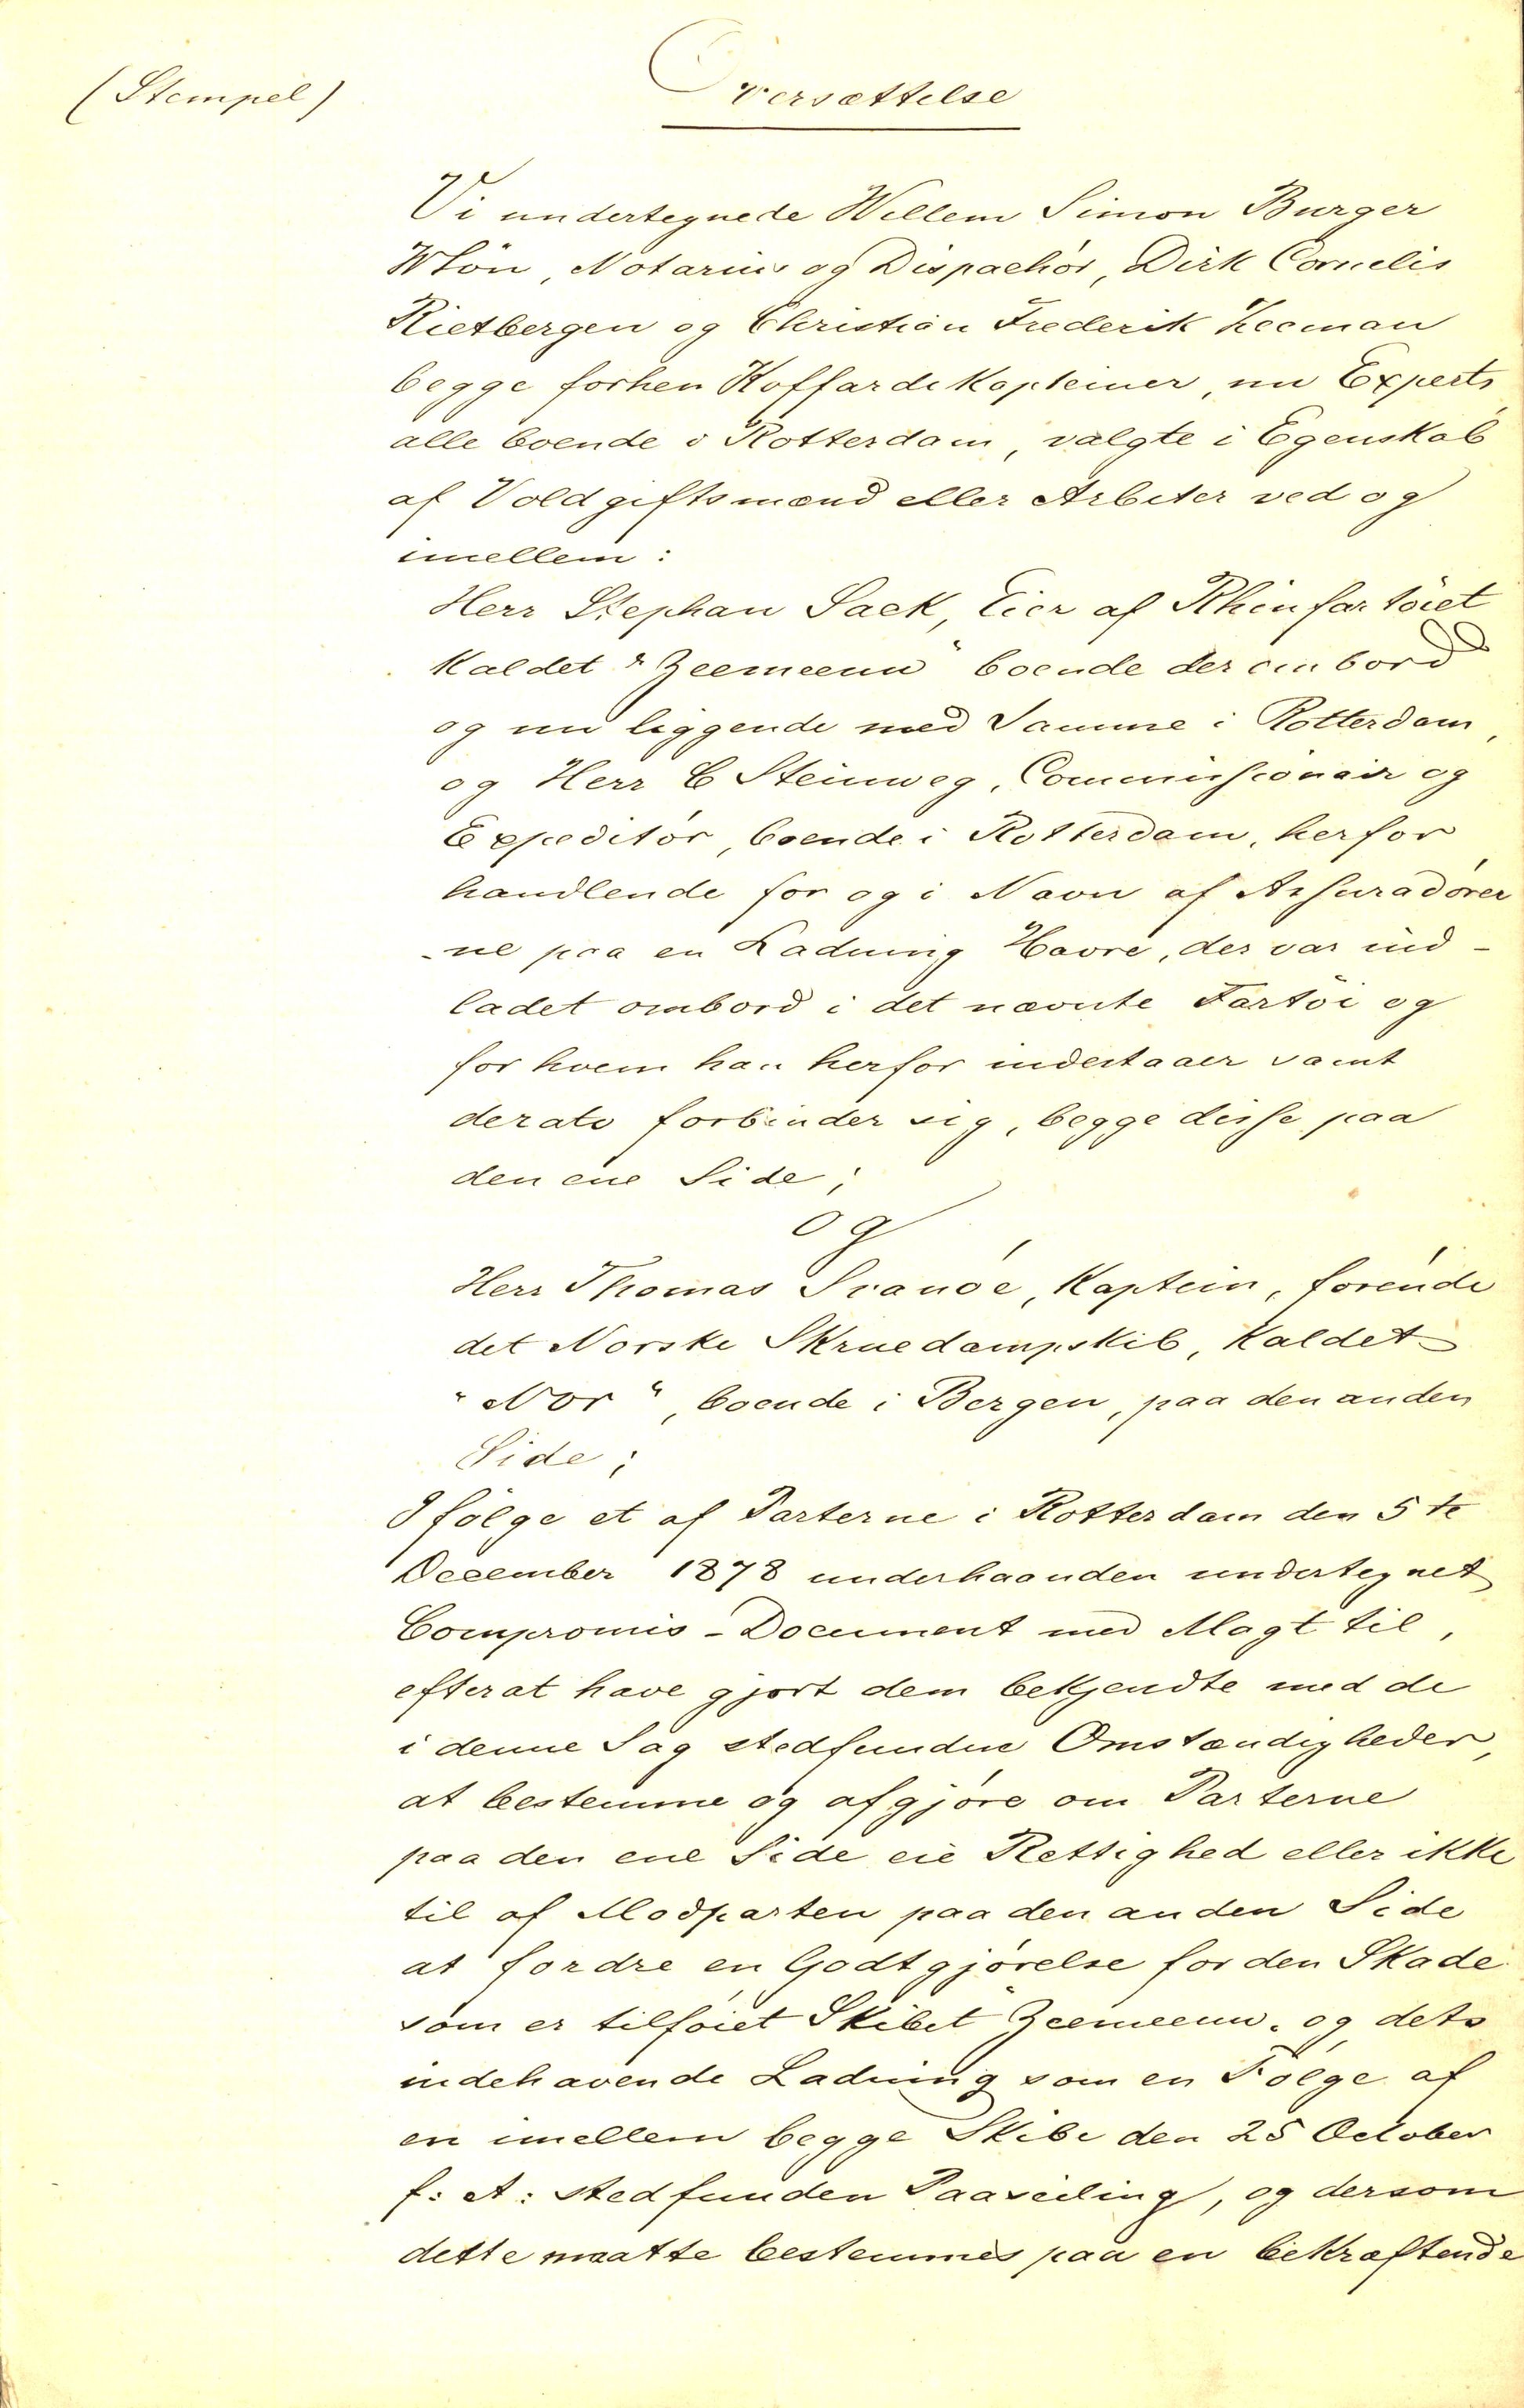 (Stempel)
Oversættelse
Vi undertegnede Willem Simon Burger
WSön, Notarius og Dispachör, Dirk Cornelis
Rietbergen og Christian Frederik Zeeman
begge forhen Koffardikapteiner, nu Experts,
alle boende i Rotterdam, valgte i Egenskab
af Voldgiftsmænd eller Arbiter ved og
imellem:
Herr Stephan Sack, Eier af Rhinfartöiet
kaldet "Zeemeeuw" boende der ombord
og nu liggende med Samme i Rotterdam,
og Herr C Steinweg, Commissionair og
Expeditör, boende i Rotterdam, herfor
handlende for og i Navn af Assuradörer
-ne paa en Ladning Havre, der var ind-
ladet ombord i det nævnte Fartöi og
for hvem han herfor indestaaer samt
derato forbinder sig, begge disse paa
den ene Side;
og
Herr Thomas Svanöe, Kaptein, förende
det Norske Skruedampskib, kaldet
"Nor", boende i Bergen, paa den anden
Side;
Ifölge et af Parterne i Rotterdam den 5te
December 1878 underhaanden undertegnet
Compromis-Document med Magt til,
efterat have gjort dem bekjendte med de
i denne Sag stedfundne Omstændigheder,
at bestemme og afgjöre om Parterne
paa den ene Side eie Rettighed eller ikke
til af Modparten paa den anden Side
at fordre en Godtgjörelse for den Skade
som er tilföiet Skibet "Zeemeeuw" og dets
indehavende Ladning som en Fölge af
en imellem begge Skibe den 25 October
f: A: stedfunden Paaseiling, og dersom
dette maatte bestemmes paa en bekræftende